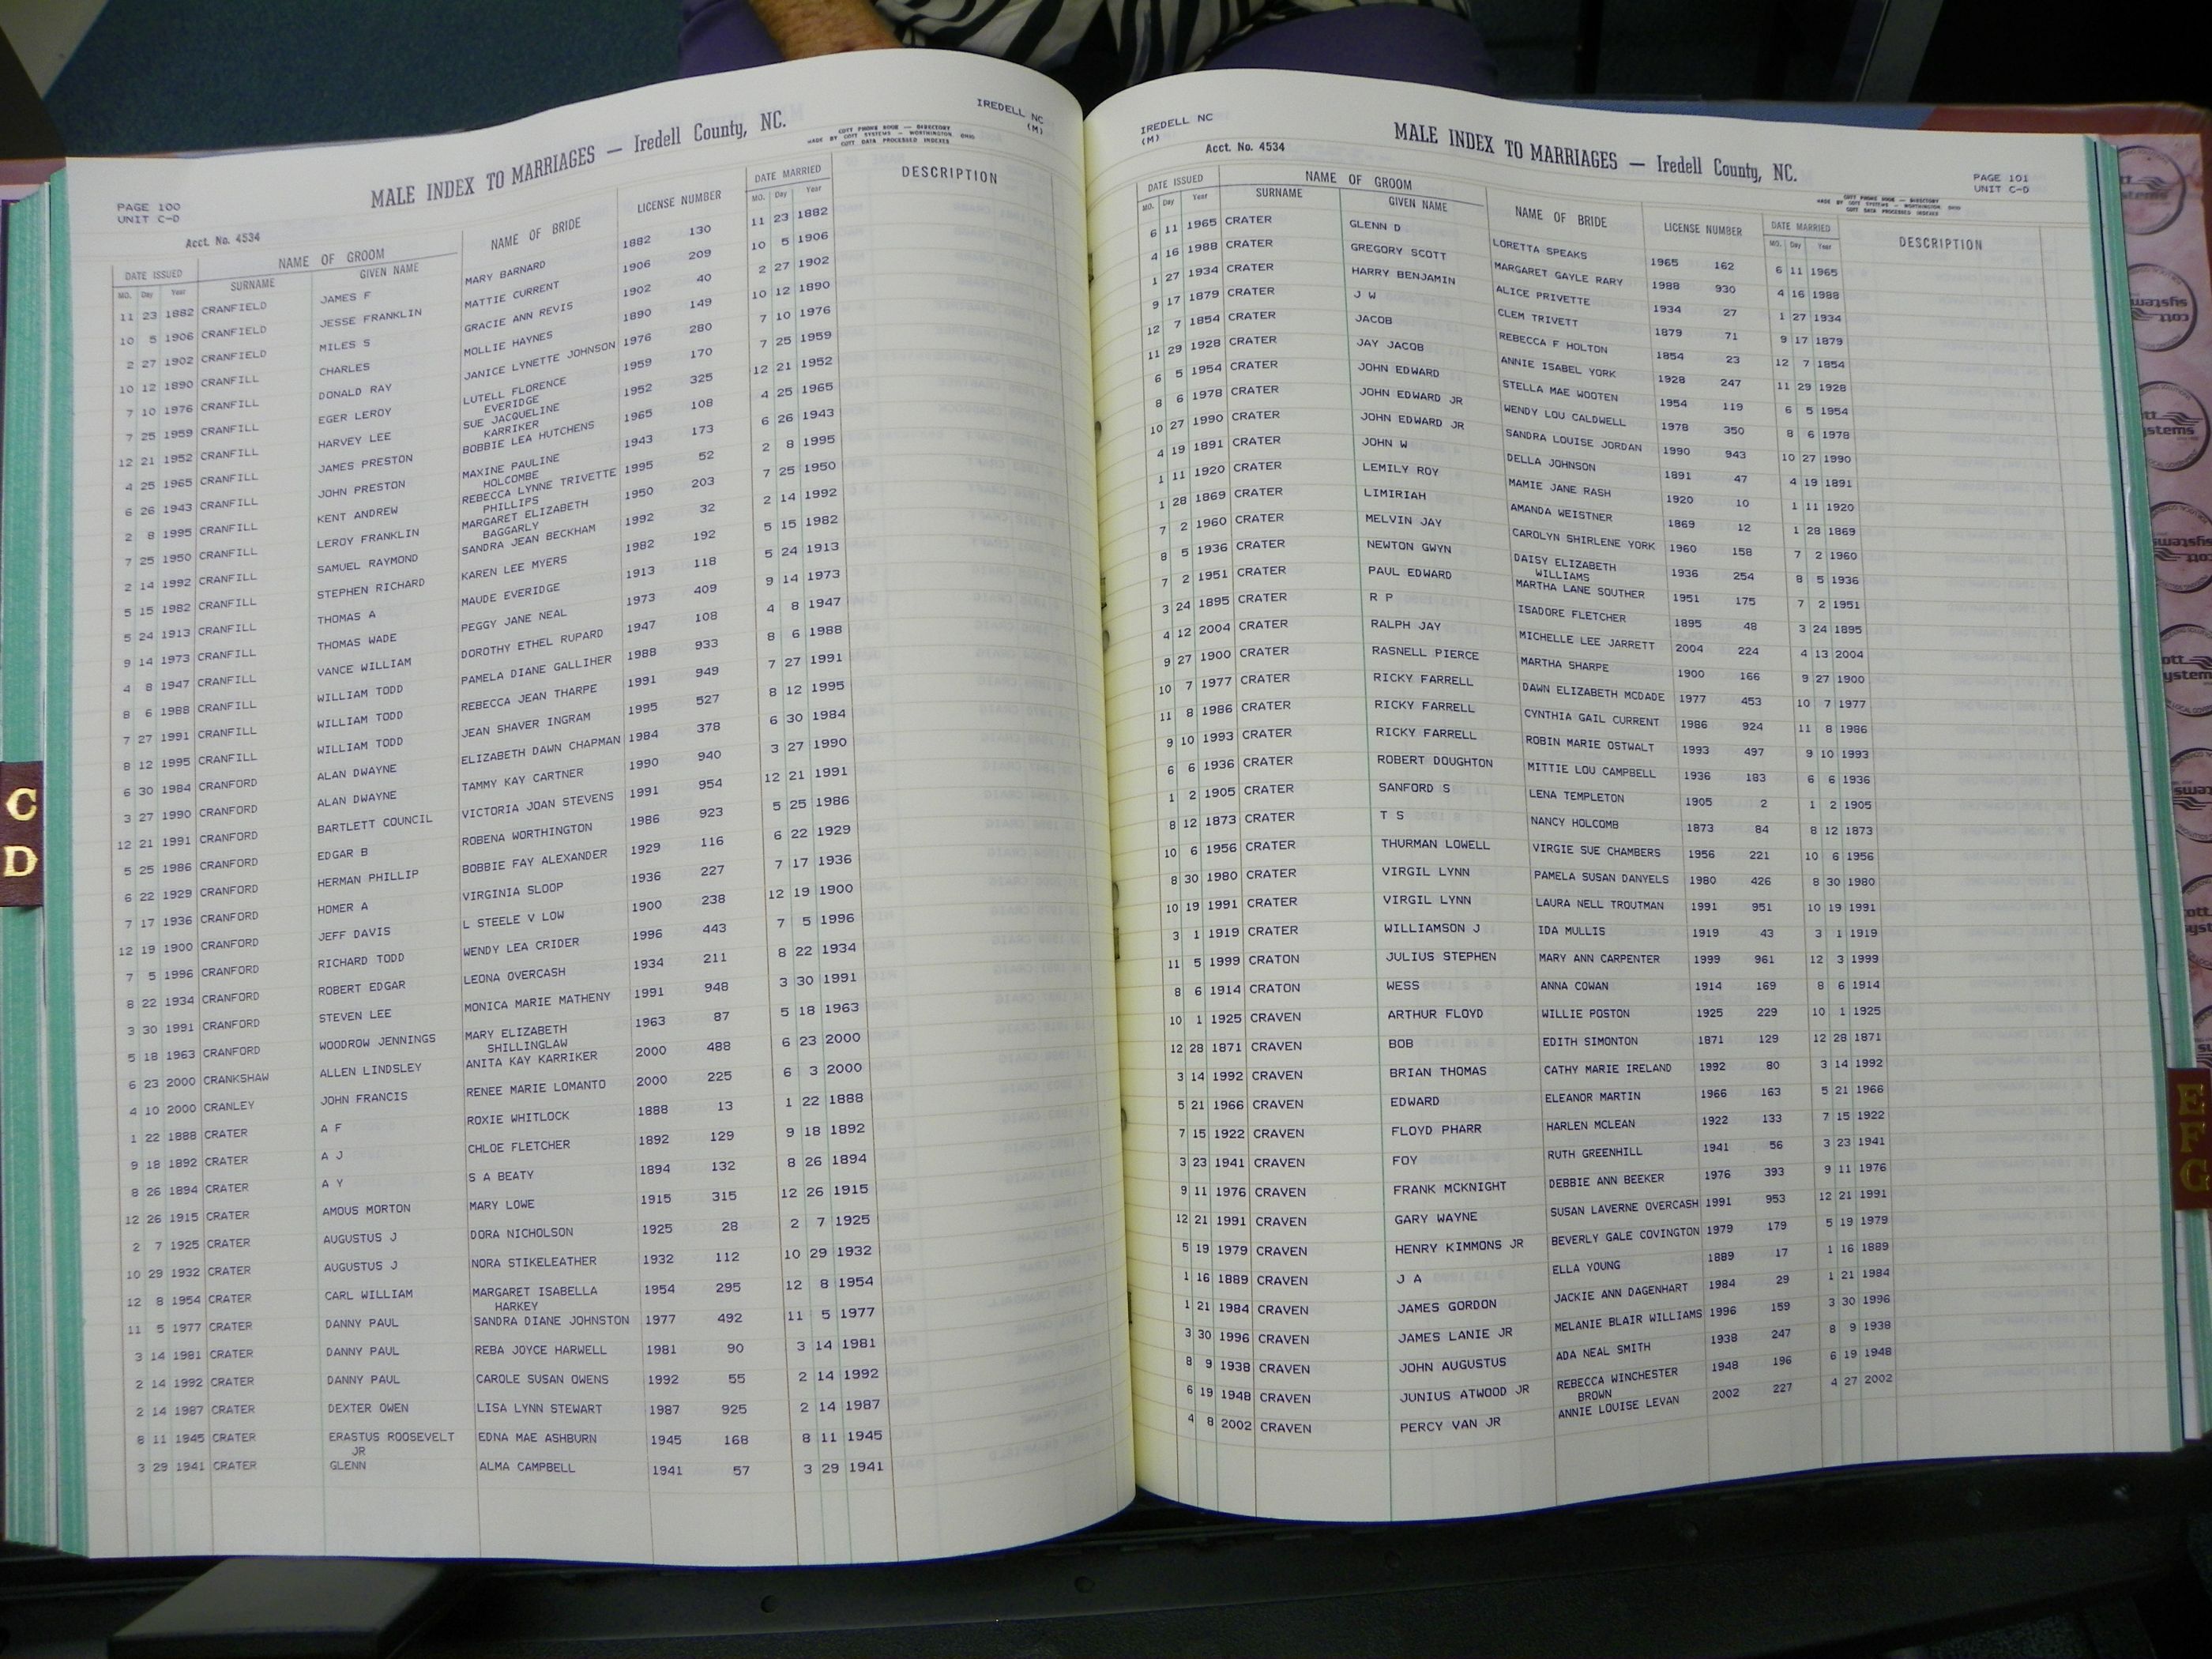 PAGE 100
UNIT C-D
Acct. No. 4534
MALE INDEX TO MARRIAGES — Iredell County, NC.
MADE BY COTT PHONE BOOK — DIRECTORY
COTT SYSTEMS — WORTHINGTON, OHIO
COTT DATA PROCESSED INDEXES
IREDELL NC
(M)
DATE ISSUED NAME OF GROOM NAME OF BRIDE LICENSE NUMBER DATE MARRIED DESCRIPTION
MO. Day Year SURNAME GIVEN NAME MO. Day Year
11 23 1882 CRANFIELD JAMES F MARY BARNARD 1882 130 11 23 1882
10 5 1906 CRANFIELD JESSE FRANKLIN MATTIE CURRENT 1906 209 10 5 1906
2 27 1902 CRANFIELD MILES S GRACIE ANN REVIS 1902 40 2 27 1902
10 12 1890 CRANFILL CHARLES MOLLIE HAYNES 1890 149 10 12 1890
7 10 1976 CRANFILL DONALD RAY JANICE LYNETTE JOHNSON 1976 280 7 10 1976
7 25 1959 CRANFILL EGER LEROY LUTELL FLORENCE 1959 170 7 25 1959
EVERIDGE
12 21 1952 CRANFILL HARVEY LEE SUE JACQUELINE 1952 325 12 21 1952
KARRIKER
4 25 1965 CRANFILL JAMES PRESTON BOBBIE LEA HUTCHENS 1965 108 4 25 1965
6 26 1943 CRANFILL JOHN PRESTON MAXINE PAULINE 1943 173 6 26 1943
HOLCOMBE
2 8 1995 CRANFILL KENT ANDREW REBECCA LYNNE TRIVETTE 1995 52 2 8 1995
PHILLIPS
7 25 1950 CRANFILL LEROY FRANKLIN MARGARET ELIZABETH 1950 203 7 25 1950
BAGGARLY
2 14 1992 CRANFILL SAMUEL RAYMOND SANDRA JEAN BECKHAM 1992 32 2 14 1992
5 15 1982 CRANFILL STEPHEN RICHARD KAREN LEE MYERS 1982 192 5 15 1982
5 24 1913 CRANFILL THOMAS A MAUDE EVERIDGE 1913 118 5 24 1913
9 14 1973 CRANFILL THOMAS WADE PEGGY JANE NEAL 1973 409 9 14 1973
4 8 1947 CRANFILL VANCE WILLIAM DOROTHY ETHEL RUPARD 1947 108 4 8 1947
8 6 1988 CRANFILL WILLIAM TODD PAMELA DIANE GALLIHER 1988 933 8 6 1988
7 27 1991 CRANFILL WILLIAM TODD REBECCA JEAN THARPE 1991 949 7 27 1991
8 12 1995 CRANFILL WILLIAM TODD JEAN SHAVER INGRAM 1995 527 8 12 1995
6 30 1984 CRANFORD ALAN DWAYNE ELIZABETH DAWN CHAPMAN 1984 378 6 30 1984
3 27 1990 CRANFORD ALAN DWAYNE TAMMY KAY CARTNER 1990 940 3 27 1990
12 21 1991 CRANFORD BARTLETT COUNCIL VICTORIA JOAN STEVENS 1991 954 12 21 1991
5 25 1986 CRANFORD EDGAR B ROBENA WORTHINGTON 1986 923 5 25 1986
6 22 1929 CRANFORD HERMAN PHILLIP BOBBIE FAY ALEXANDER 1929 116 6 22 1929
7 17 1936 CRANFORD HOMER A VIRGINIA SLOOP 1936 227 7 17 1936
12 19 1900 CRANFORD JEFF DAVIS L STEELE V LOW 1900 238 12 19 1900
7 5 1996 CRANFORD RICHARD TODD WENDY LEA CRIDER 1996 443 7 5 1996
8 22 1934 CRANFORD ROBERT EDGAR LEONA OVERCASH 1934 211 8 22 1934
3 30 1991 CRANFORD STEVEN LEE MONICA MARIE MATHENY 1991 948 3 30 1991
5 18 1963 CRANFORD WOODROW JENNINGS MARY ELIZABETH 1963 87 5 18 1963
SHILLINGLAW
6 23 2000 CRANKSHAW ALLEN LINDSLEY ANITA KAY KARRIKER 2000 488 6 23 2000
4 10 2000 CRANLEY JOHN FRANCIS RENEE MARIE LOMANTO 2000 225 6 3 2000
1 22 1888 CRATER A F ROXIE WHITLOCK 1888 13 1 22 1888
9 18 1892 CRATER A J CHLOE FLETCHER 1892 129 9 18 1892
8 26 1894 CRATER A Y S A BEATY 1894 132 8 26 1894
12 26 1915 CRATER AMOUS MORTON MARY LOWE 1915 315 12 26 1915
2 7 1925 CRATER AUGUSTUS J DORA NICHOLSON 1925 28 2 7 1925
10 29 1932 CRATER AUGUSTUS J NORA STIKELEATHER 1932 112 10 29 1932
12 8 1954 CRATER CARL WILLIAM MARGARET ISABELLA 1954 295 12 8 1954
HARKEY
11 5 1977 CRATER DANNY PAUL SANDRA DIANE JOHNSTON 1977 492 11 5 1977
3 14 1981 CRATER DANNY PAUL REBA JOYCE HARWELL 1981 90 3 14 1981
2 14 1992 CRATER DANNY PAUL CAROLE SUSAN OWENS 1992 55 2 14 1992
2 14 1987 CRATER DEXTER OWEN LISA LYNN STEWART 1987 925 2 14 1987
8 11 1945 CRATER ERASTUS ROOSEVELT EDNA MAE ASHBURN 1945 168 8 11 1945
JR
3 29 1941 CRATER GLENN ALMA CAMPBELL 1941 57 3 29 1941
C
D
IREDELL NC
(M)
Acct. No. 4534
MALE INDEX TO MARRIAGES — Iredell County, NC.
MADE BY COTT PHONE BOOK — DIRECTORY
COTT SYSTEMS — WORTHINGTON, OHIO
COTT DATA PROCESSED INDEXES
PAGE 101
UNIT C-D
DATE ISSUED NAME OF GROOM NAME OF BRIDE LICENSE NUMBER DATE MARRIED DESCRIPTION
MO. Day Year SURNAME GIVEN NAME MO. Day Year
6 11 1965 CRATER GLENN D LORETTA SPEAKS 1965 162 6 11 1965
4 16 1988 CRATER GREGORY SCOTT MARGARET GAYLE RARY 1988 930 4 16 1988
1 27 1934 CRATER HARRY BENJAMIN ALICE PRIVETTE 1934 27 1 27 1934
9 17 1879 CRATER J W CLEM TRIVETT 1879 71 9 17 1879
12 7 1854 CRATER JACOB REBECCA F HOLTON 1854 23 12 7 1854
11 29 1928 CRATER JAY JACOB ANNIE ISABEL YORK 1928 247 11 29 1928
6 5 1954 CRATER JOHN EDWARD STELLA MAE WOOTEN 1954 119 6 5 1954
8 6 1978 CRATER JOHN EDWARD JR WENDY LOU CALDWELL 1978 350 8 6 1978
10 27 1990 CRATER JOHN EDWARD JR SANDRA LOUISE JORDAN 1990 943 10 27 1990
4 19 1891 CRATER JOHN W DELLA JOHNSON 1891 47 4 19 1891
1 11 1920 CRATER LEMILY ROY MAMIE JANE RASH 1920 10 1 11 1920
1 28 1869 CRATER LIMIRIAH AMANDA WEISTNER 1869 12 1 28 1869
7 2 1960 CRATER MELVIN JAY CAROLYN SHIRLENE YORK 1960 158 7 2 1960
8 5 1936 CRATER NEWTON GWYN DAISY ELIZABETH 1936 254 8 5 1936
WILLIAMS
7 2 1951 CRATER PAUL EDWARD MARTHA LANE SOUTHER 1951 175 7 2 1951
3 24 1895 CRATER R P ISADORE FLETCHER 1895 48 3 24 1895
4 12 2004 CRATER RALPH JAY MICHELLE LEE JARRETT 2004 224 4 13 2004
9 27 1900 CRATER RASNELL PIERCE MARTHA SHARPE 1900 166 9 27 1900
10 7 1977 CRATER RICKY FARRELL DAWN ELIZABETH MCDADE 1977 453 10 7 1977
11 8 1986 CRATER RICKY FARRELL CYNTHIA GAIL CURRENT 1986 924 11 8 1986
9 10 1993 CRATER RICKY FARRELL ROBIN MARIE OSTWALT 1993 497 9 10 1993
6 6 1936 CRATER ROBERT DOUGHTON MITTIE LOU CAMPBELL 1936 183 6 6 1936
1 2 1905 CRATER SANFORD S LENA TEMPLETON 1905 2 1 2 1905
8 12 1873 CRATER T S NANCY HOLCOMB 1873 84 8 12 1873
10 6 1956 CRATER THURMAN LOWELL VIRGIE SUE CHAMBERS 1956 221 10 6 1956
8 30 1980 CRATER VIRGIL LYNN PAMELA SUSAN DANYELS 1980 426 8 30 1980
10 19 1991 CRATER VIRGIL LYNN LAURA NELL TROUTMAN 1991 951 10 19 1991
3 1 1919 CRATER WILLIAMSON J IDA MULLIS 1919 43 3 1 1919
11 5 1999 CRATON JULIUS STEPHEN MARY ANN CARPENTER 1999 961 12 3 1999
8 6 1914 CRATON WESS ANNA COWAN 1914 169 8 6 1914
10 1 1925 CRAVEN ARTHUR FLOYD WILLIE POSTON 1925 229 10 1 1925
12 28 1871 CRAVEN BOB EDITH SIMONTON 1871 129 12 28 1871
3 14 1992 CRAVEN BRIAN THOMAS CATHY MARIE IRELAND 1992 80 3 14 1992
5 21 1966 CRAVEN EDWARD ELEANOR MARTIN 1966 163 5 21 1966
7 15 1922 CRAVEN FLOYD PHARR HARLEN MCLEAN 1922 133 7 15 1922
3 23 1941 CRAVEN FOY RUTH GREENHILL 1941 56 3 23 1941
9 11 1976 CRAVEN FRANK MCKNIGHT DEBBIE ANN BEEKER 1976 393 9 11 1976
12 21 1991 CRAVEN GARY WAYNE SUSAN LAVERNE OVERCASH 1991 953 12 21 1991
5 19 1979 CRAVEN HENRY KIMMONS JR BEVERLY GALE COVINGTON 1979 179 5 19 1979
1 16 1889 CRAVEN J A ELLA YOUNG 1889 17 1 16 1889
1 21 1984 CRAVEN JAMES GORDON JACKIE ANN DAGENHART 1984 29 1 21 1984
3 30 1996 CRAVEN JAMES LANIE JR MELANIE BLAIR WILLIAMS 1996 159 3 30 1996
8 9 1938 CRAVEN JOHN AUGUSTUS ADA NEAL SMITH 1938 247 8 9 1938
6 19 1948 CRAVEN JUNIUS ATWOOD JR REBECCA WINCHESTER 1948 196 6 19 1948
BROWN
4 8 2002 CRAVEN PERCY VAN JR ANNIE LOUISE LEVAN 2002 227 4 27 2002
E
F
G
cott
systems